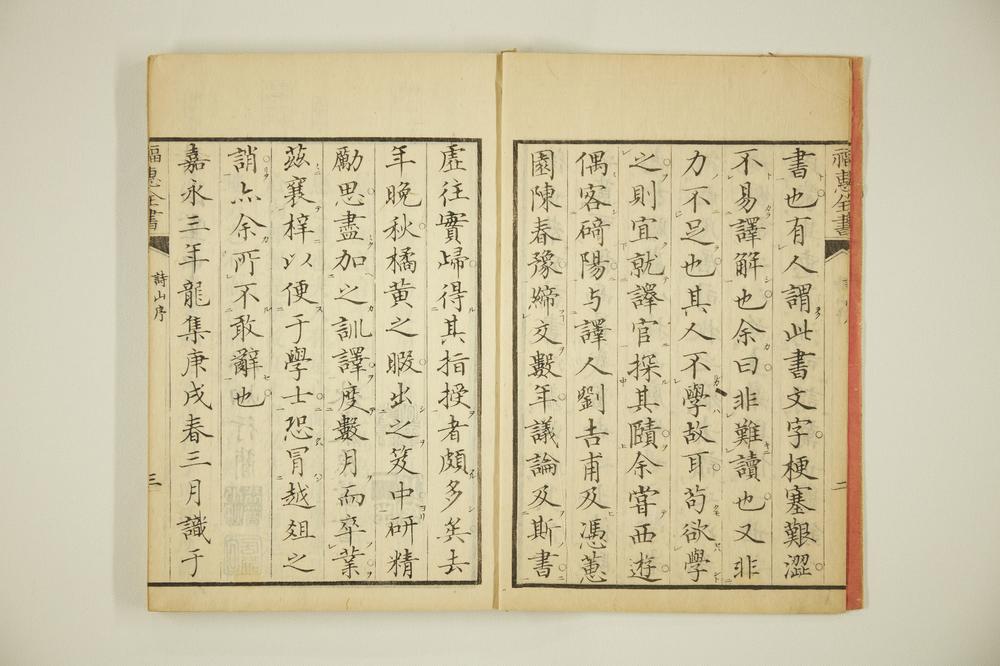 福惠全書
書也有人謂此書文字梗塞艱澀
不易譯解也余曰非難讀也又非
力不足也其人不學故耳苟欲學
之則宜就譯官探其賾余嘗西遊
偶客碕陽与譯人劉吉甫及馮蕙
園陳春豫締文數年議論及斯書
二
虛往實歸得其指授者頗多矣去
年晚秋橘黄之暇出之笈中研精
勵思盡加之訓譯度數月而卒業
茲襄梓以便于學士恐冒越俎之
誚亦余所不敢辭也
嘉永三年龍集庚戌春三月識于
福惠全書
詩山序
三